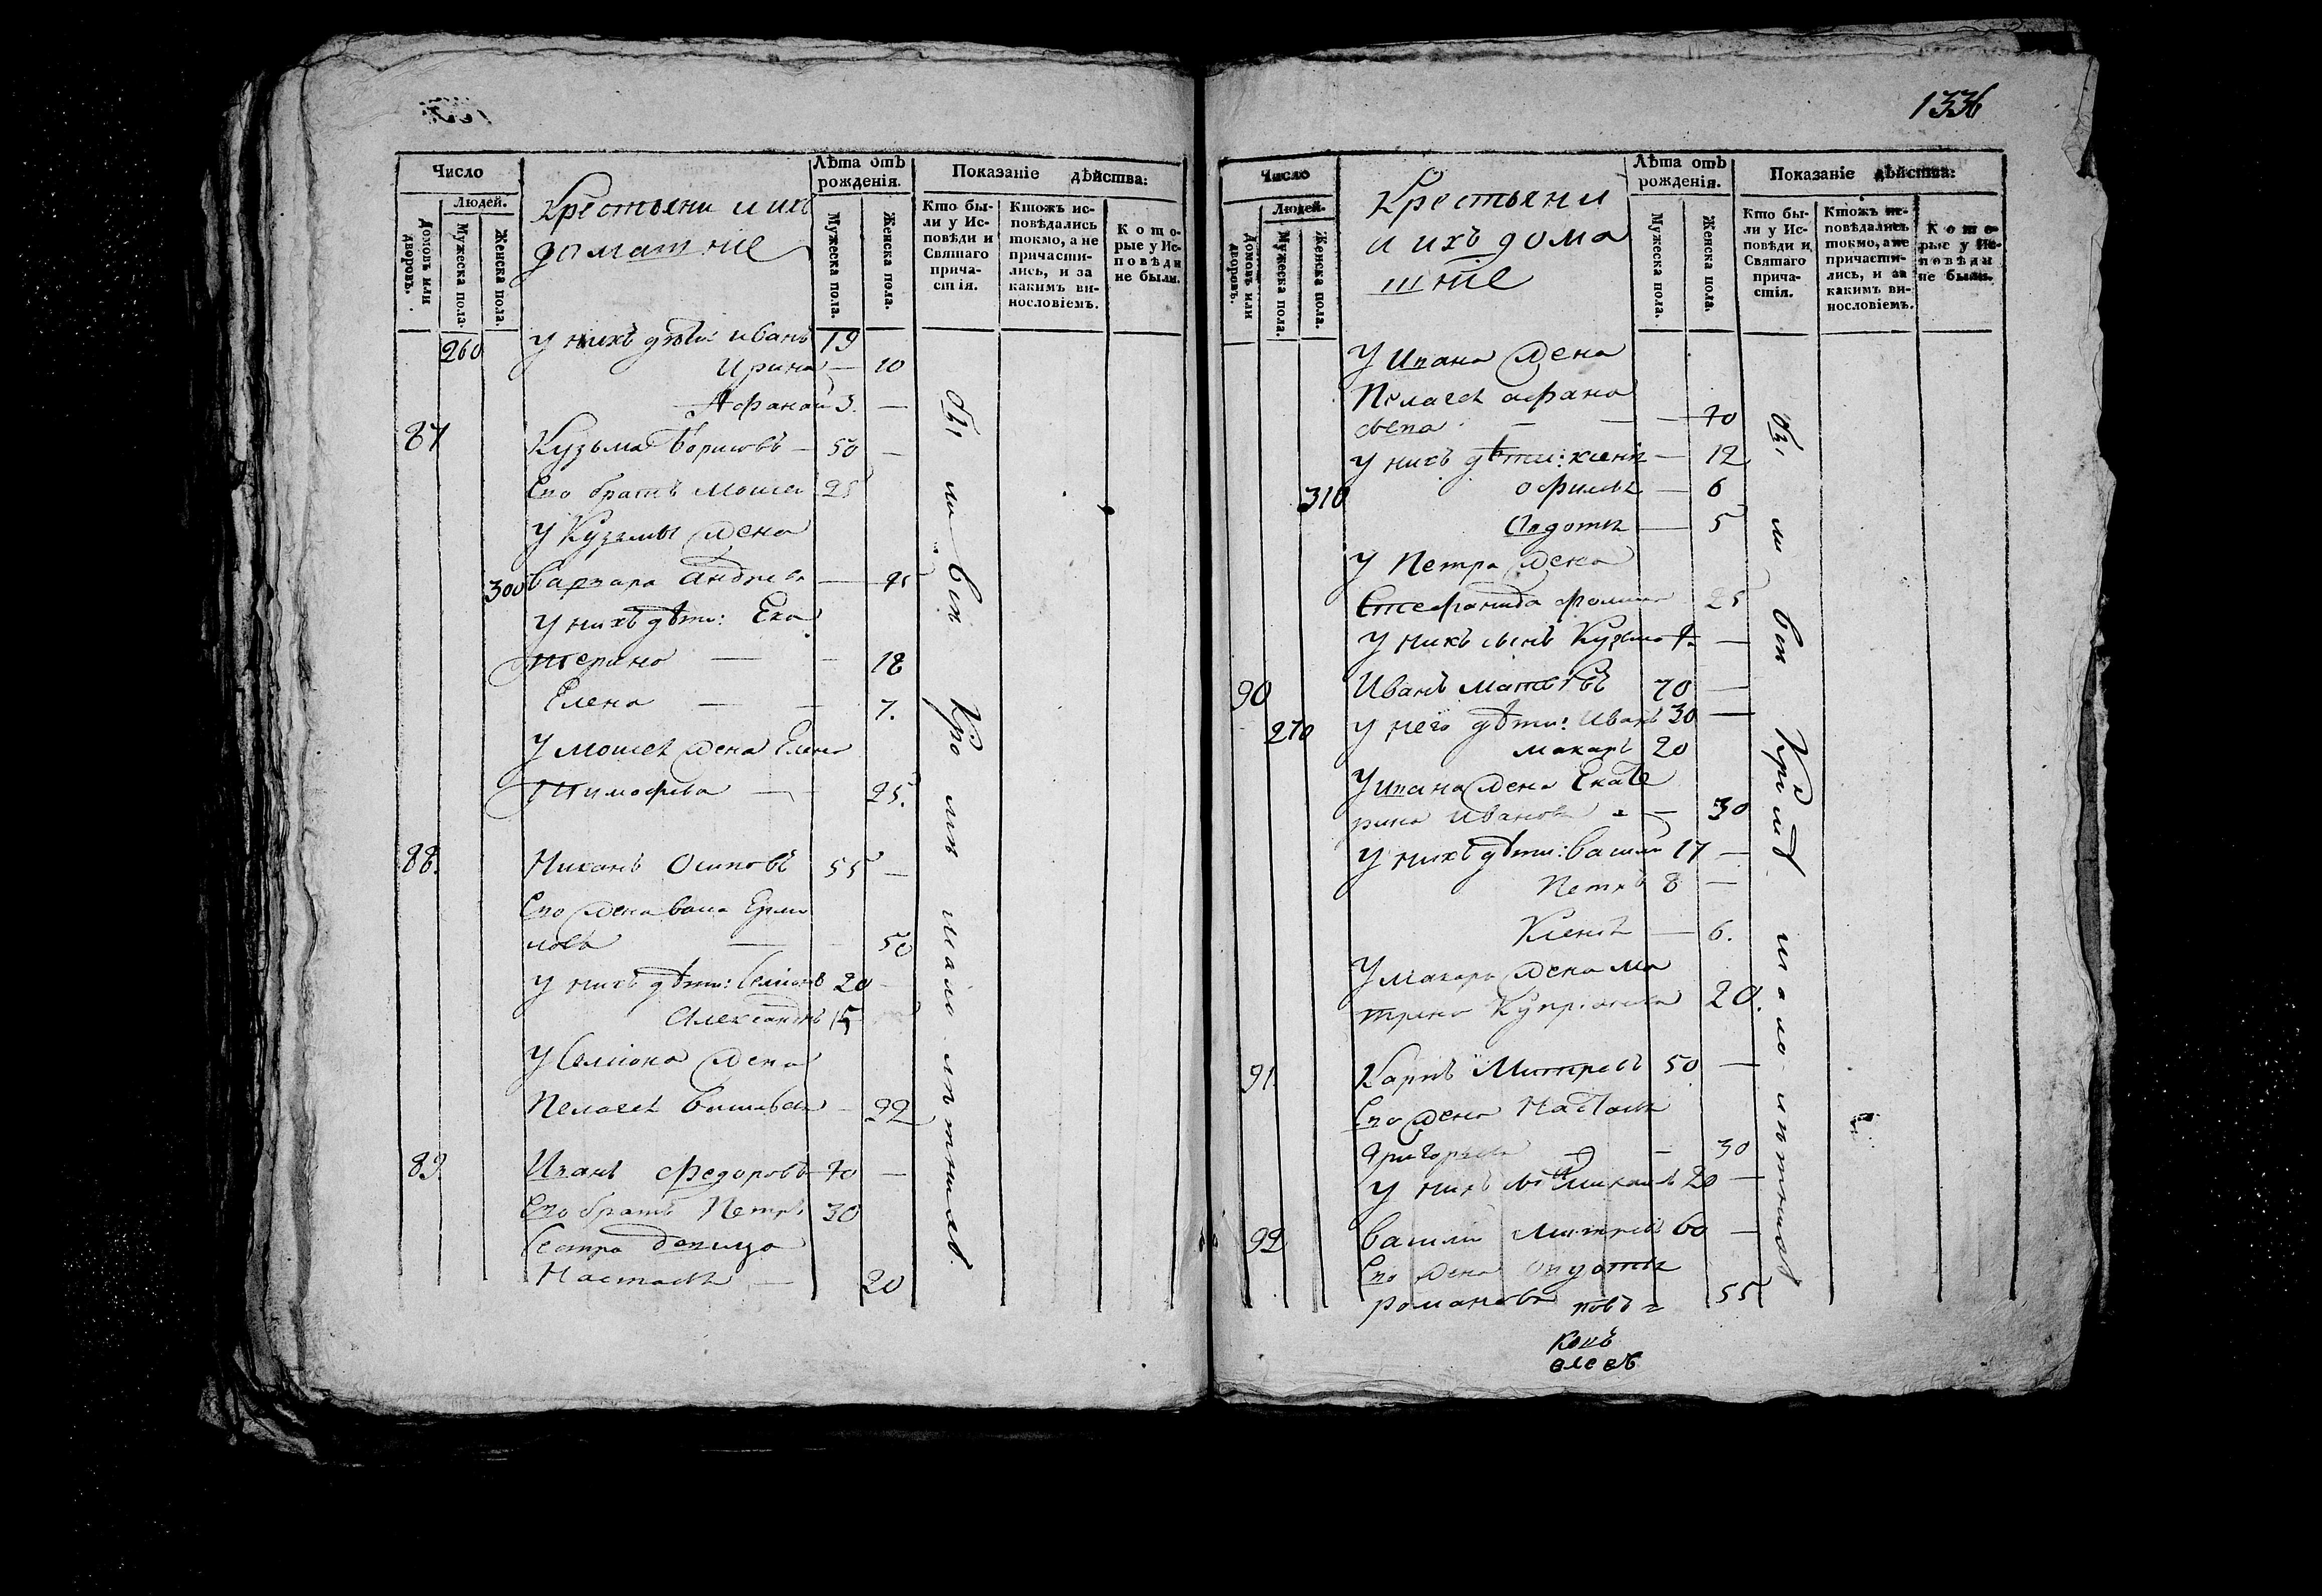 Число
Людей.
Домовъ или дворовъ.
Мужеска пола.
Женска пола.
Крестьяни и ихъ
домашніе
Лѣта отъ
рожденія.
Мужеска пола.
Женска пола.
Показаніе дѣйства:
Кто бы-
ли у Ис-
повѣди и
Святаго
прича-
стія.
Ктожъ ис-
повѣдались
токмо, а не
причасти-
лись, и за
какимъ ви-
нословіемъ.
Кото-
рые у Ис-
повѣди
не были.
260 у нихъ дѣти: иванъ 19
Ирина — 10
Афанаси 3. —
87 Кузьма Борисовъ — 50 —
Его братъ Моисеи 25
У Кузьмы жена
300 Варвара андреева — 45
У нихъ дѣти: Ека
терина — — 18
Елена — — 7.
У моисея жена Елена
Тимофеева — — 25.
88. Никонъ Осиповъ 55 —
Его жена васса Ерми
лова — — 50
у нихъ дѣти: Семіонъ 20 —
Александръ 15
У Семіона жена
Пелагея Васильева — 22
89. Иванъ Федоровъ 40 —
Его братъ Петръ 30
Сестра девица
Настасья — 20
бы ли вси Кро мѣ мало лѣтнихъ
1336
Число
Людей.
Домовъ или дворовъ.
Мужеска пола.
Женска пола.
Крестьяни
и ихъ дома
шніе
Лѣта отъ
рожденія.
Мужеска пола.
Женска пола.
Показаніе дѣйства:
Кто бы-
ли у Ис-
повѣди и
Святаго
прича-
стія.
Ктожъ ис-
повѣдались
токмо, а не
причасти-
лись, и за
какимъ ви-
нословіемъ.
Кото-
рые у Ис-
повѣди
не были.
У Ивана жена
Пелагея афана
сьева — — — 40
у нихъ дѣти: ксенія — 12
310 офимья — 6
Авдотья — 5
У Петра жена
Стефанида фомина 25
У нихъ сынъ Кузьма 4. —
90 Иванъ Матвѣевъ 70 —
270 у него дѣти: Иванъ 30 —
макаръ 20
У ивана жена Екате
рина Иванова — 30
у нихъ дѣти: Василий 17 —
Петръ 8 —
Ксенія — 6.
У макара жена ма
трена Купріянова 20.
91. Карпъ Митревъ 50 —
Его жена Настасья
Григорьева — — 30
у нихъ сынъ Михаилъ 20 —
92 Василий Митревъ 60 —
Его жена авдотья
романова 55
бы ли вси Кромѣ мало лѣтнихъ